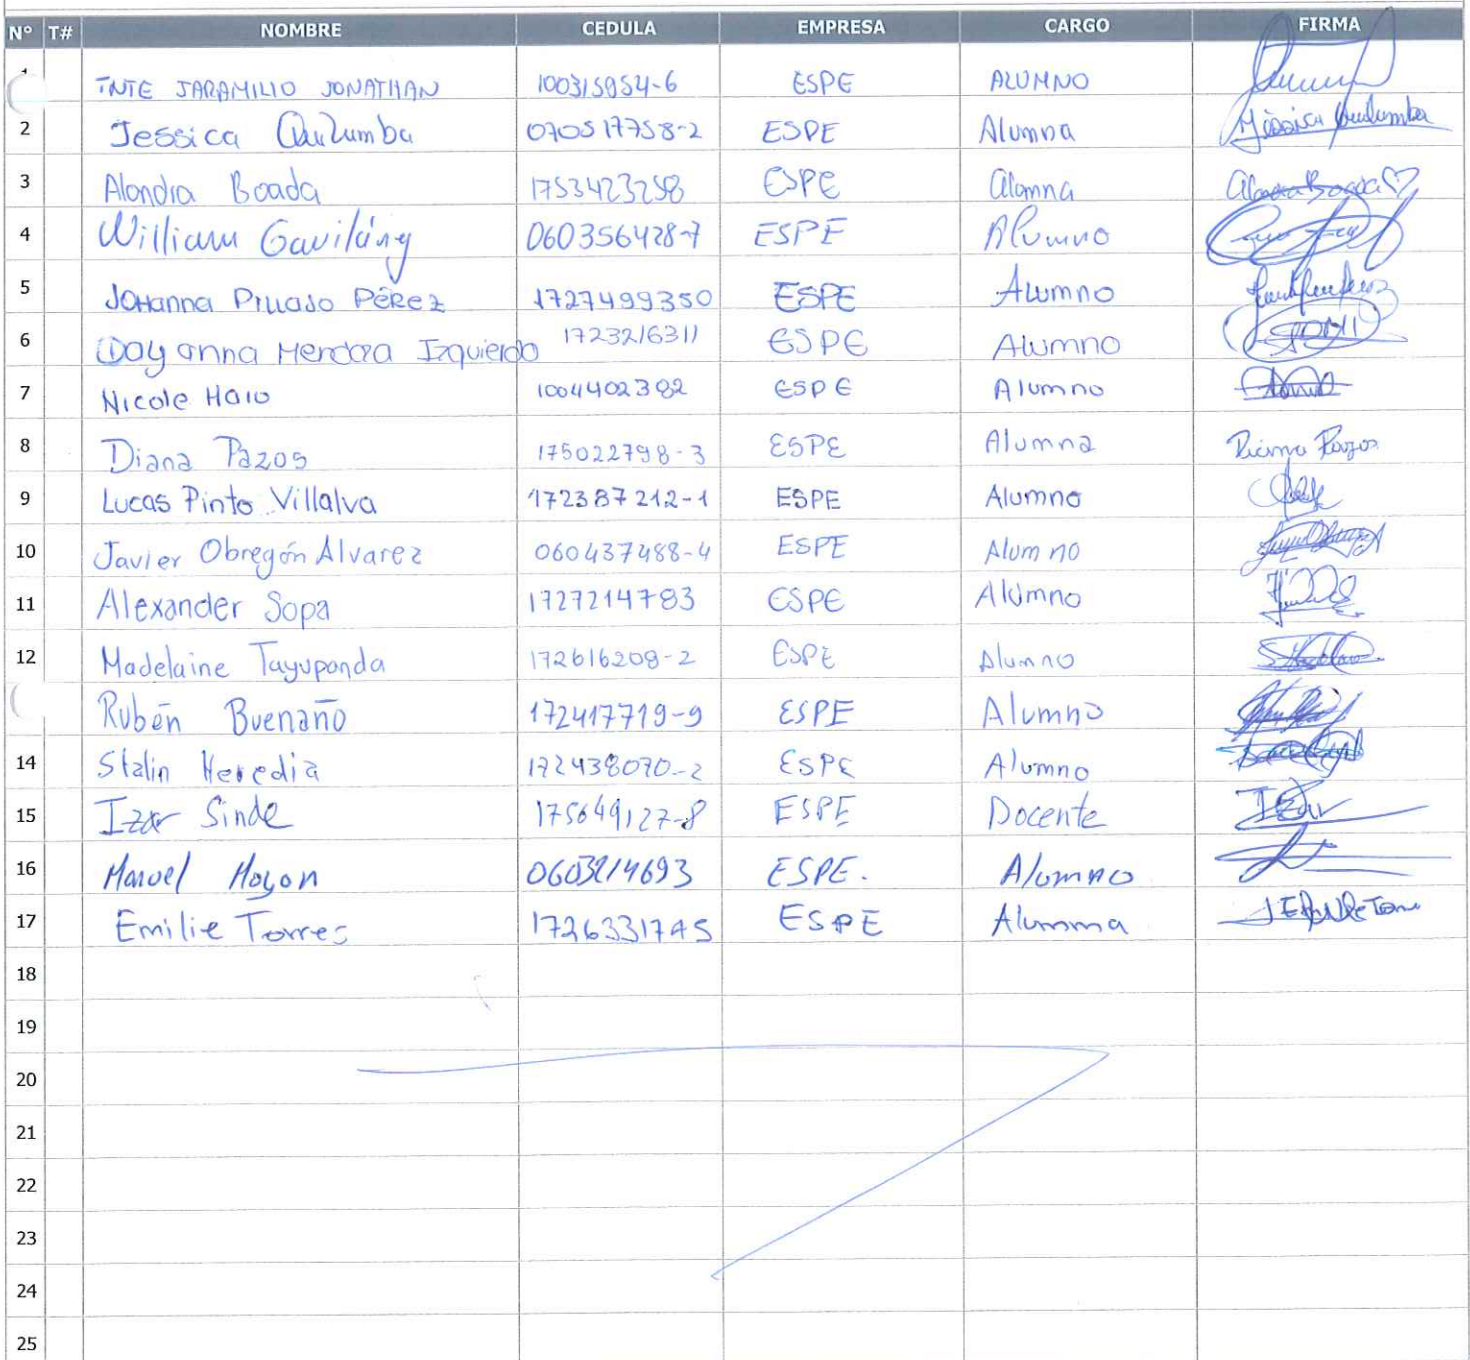 N° T# NOMBRE CEDULA EMPRESA CARGO FIRMA
1 INTE JARAMILLO JONATHAN 100315954-6 ESPE ALUMNO
2 Jessica Quilumba 070517758-2 ESPE Alumna Jessica Quilumba
3 Alondra Boada 1753423258 ESPE alumna Alondra Boada
4 William Gavilánez 060356428-7 ESPE Alumno
5 Johanna Pillajo Pérez 1727499350 ESPE Alumno
6 Dayanna Mendoza Izquierdo 1723216311 ESPE Alumno
7 Nicole Haro 1004402382 ESPE Alumno
8 Diana Pazos 175022798-3 ESPE Alumna Diana Pazos
9 Lucas Pinto Villalva 172387212-1 ESPE Alumno
10 Javier Obregón Alvarez 060437488-4 ESPE Alumno
11 Alexander Sopa 1727214783 ESPE Alumno
12 Madelaine Tayupanda 172616209-2 ESPE Alumno
Rubén Buenaño 172417719-9 ESPE Alumno
14 Stalin Heredia 172438070-2 ESPE Alumno
15 Izar Sinde 175649127-8 ESPE Docente Izar
16 Manuel Moyon 0603214693 ESPE. Alumno
17 Emilie Torres 1726331745 ESPE Alumna
18
19
20
21
22
23
24
25